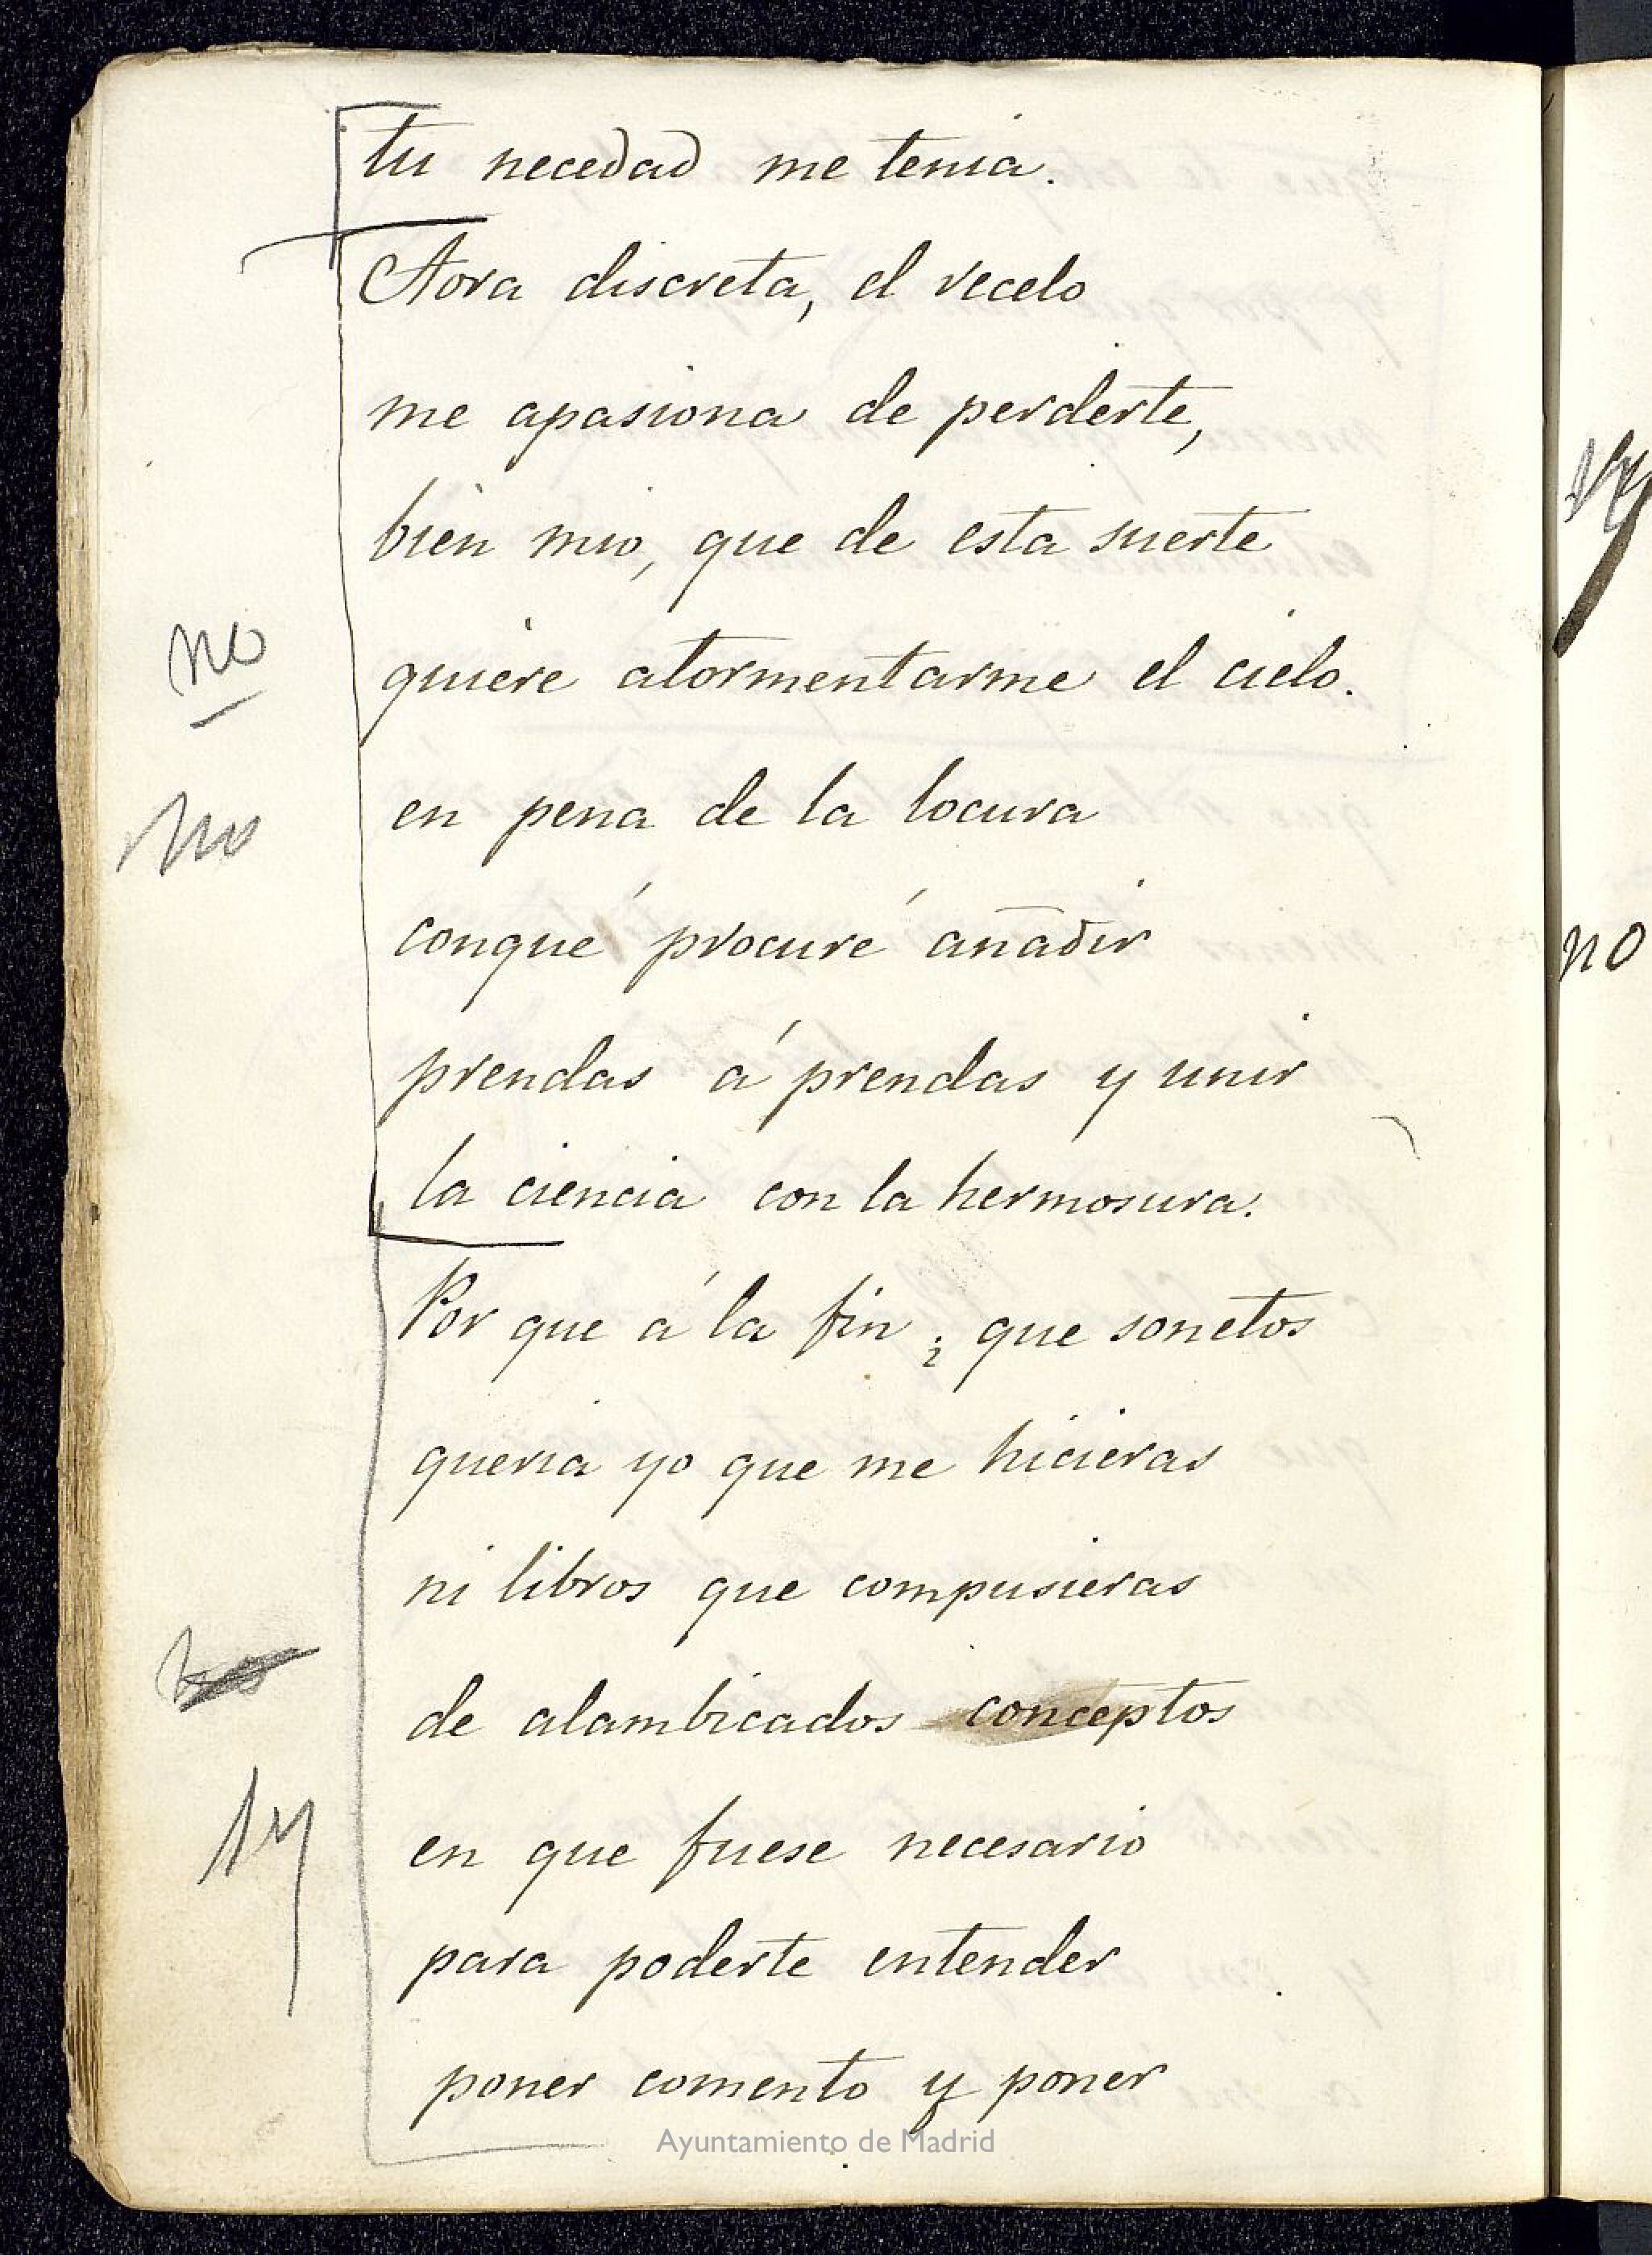 tu necedad me tenia.
Aora discreta, el recelo
me apasiona de perderte,
bien mio, que de esta suerte
quiere atormentarme el cielo.
no
en pena de la locura
no
conqué procuré añadir
prendas á prendas y unir
la ciencia con la hermosura.
Por que á la fin ¿ que sonetos
queria yo que me hicieras
ni libros que compusieras
de alambicados conceptos
en que fuese necesario
para poderte entender
poner comento y poner
no
Ayuntamiento de Madrid